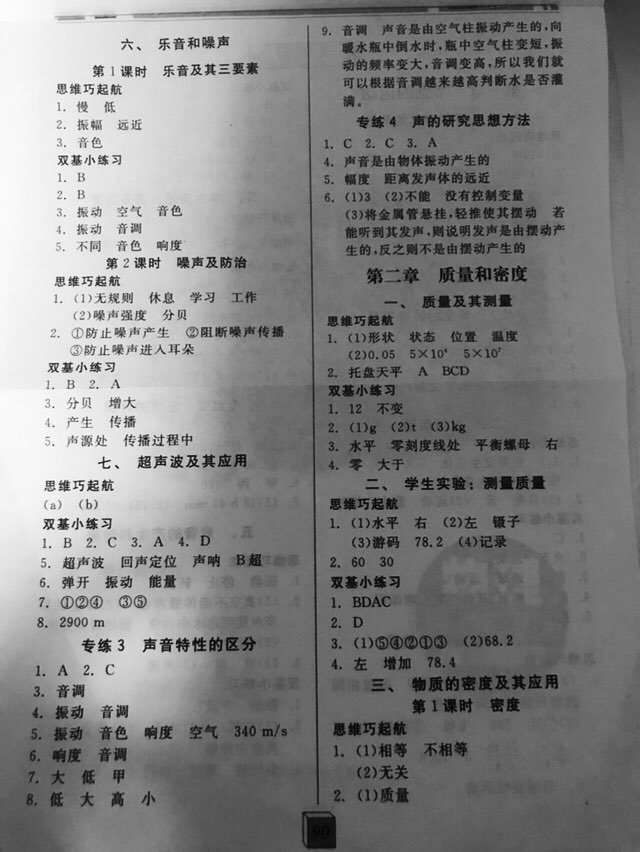 六、乐音和噪声
第1课时 乐音及其三要素
思维巧起航
1. 慢 低
2. 振幅 远近
3. 音色
双基小练习
1. B
2. B
3. 振动 空气 音色
4. 振动 音调
5. 不同 音色 响度
第2课时 噪声及防治
思维巧起航
1. (1)无规则 休息 学习 工作
(2)噪声强度 分贝
2. ①防止噪声产生 ②阻断噪声传播
③防止噪声进入耳朵
双基小练习
1. B 2. A
3. 分贝 增大
4. 产生 传播
5. 声源处 传播过程中
七、超声波及其应用
思维巧起航
(a) (b)
双基小练习
1. B 2. C 3. A 4. D
5. 超声波 回声定位 声呐 B超
6. 弹开 振动 能量
7. ①②④ ③⑤
8. 2900 m
专练3 声音特性的区分
1. A 2. C
3. 音调
4. 振动 音调
5. 振动 音色 响度 空气 340 m/s
6. 响度 音调
7. 大 低 甲
8. 低 大 高 小
9. 音调 声音是由空气柱振动产生的,向
暖水瓶中倒水时,瓶中空气柱变短,振
动的频率变大,音调变高,所以我们就
可以根据音调越来越高判断水是否灌
满。
专练4 声的研究思想方法
1. C 2. C 3. A
4. 声音是由物体振动产生的
5. 幅度 距离发声体的远近
6. (1)3 (2)不能 没有控制变量
(3)将金属管悬挂,轻推使其摆动 若
能听到其发声,则说明发声是由摆动产
生的,反之则不是由摆动产生的
第二章 质量和密度
一、质量及其测量
思维巧起航
1. (1)形状 状态 位置 温度
(2)0.05 5×10⁴ 5×10⁷
2. 托盘天平 A BCD
双基小练习
1. 12 不变
2. (1)g (2)t (3)kg
3. 水平 零刻度线处 平衡螺母 右
4. 零 大于
二、学生实验:测量质量
思维巧起航
1. (1)水平 右 (2)左 镊子
(3)游码 78.2 (4)记录
2. 60 30
双基小练习
1. BDAC
2. D
3. (1)⑤④②①③ (2)68.2
4. 左 增加 78.4
三、物质的密度及其应用
第1课时 密度
思维巧起航
1. (1)相等 不相等
(2)无关
2. (1)质量
90